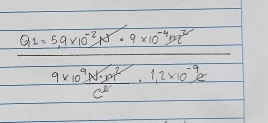 Q1 = 5,9 x 10⁻² N · 9 x 10⁻⁴ m²
9 x 10⁹ N · m² / C² · 1,2 x 10⁻⁹ C